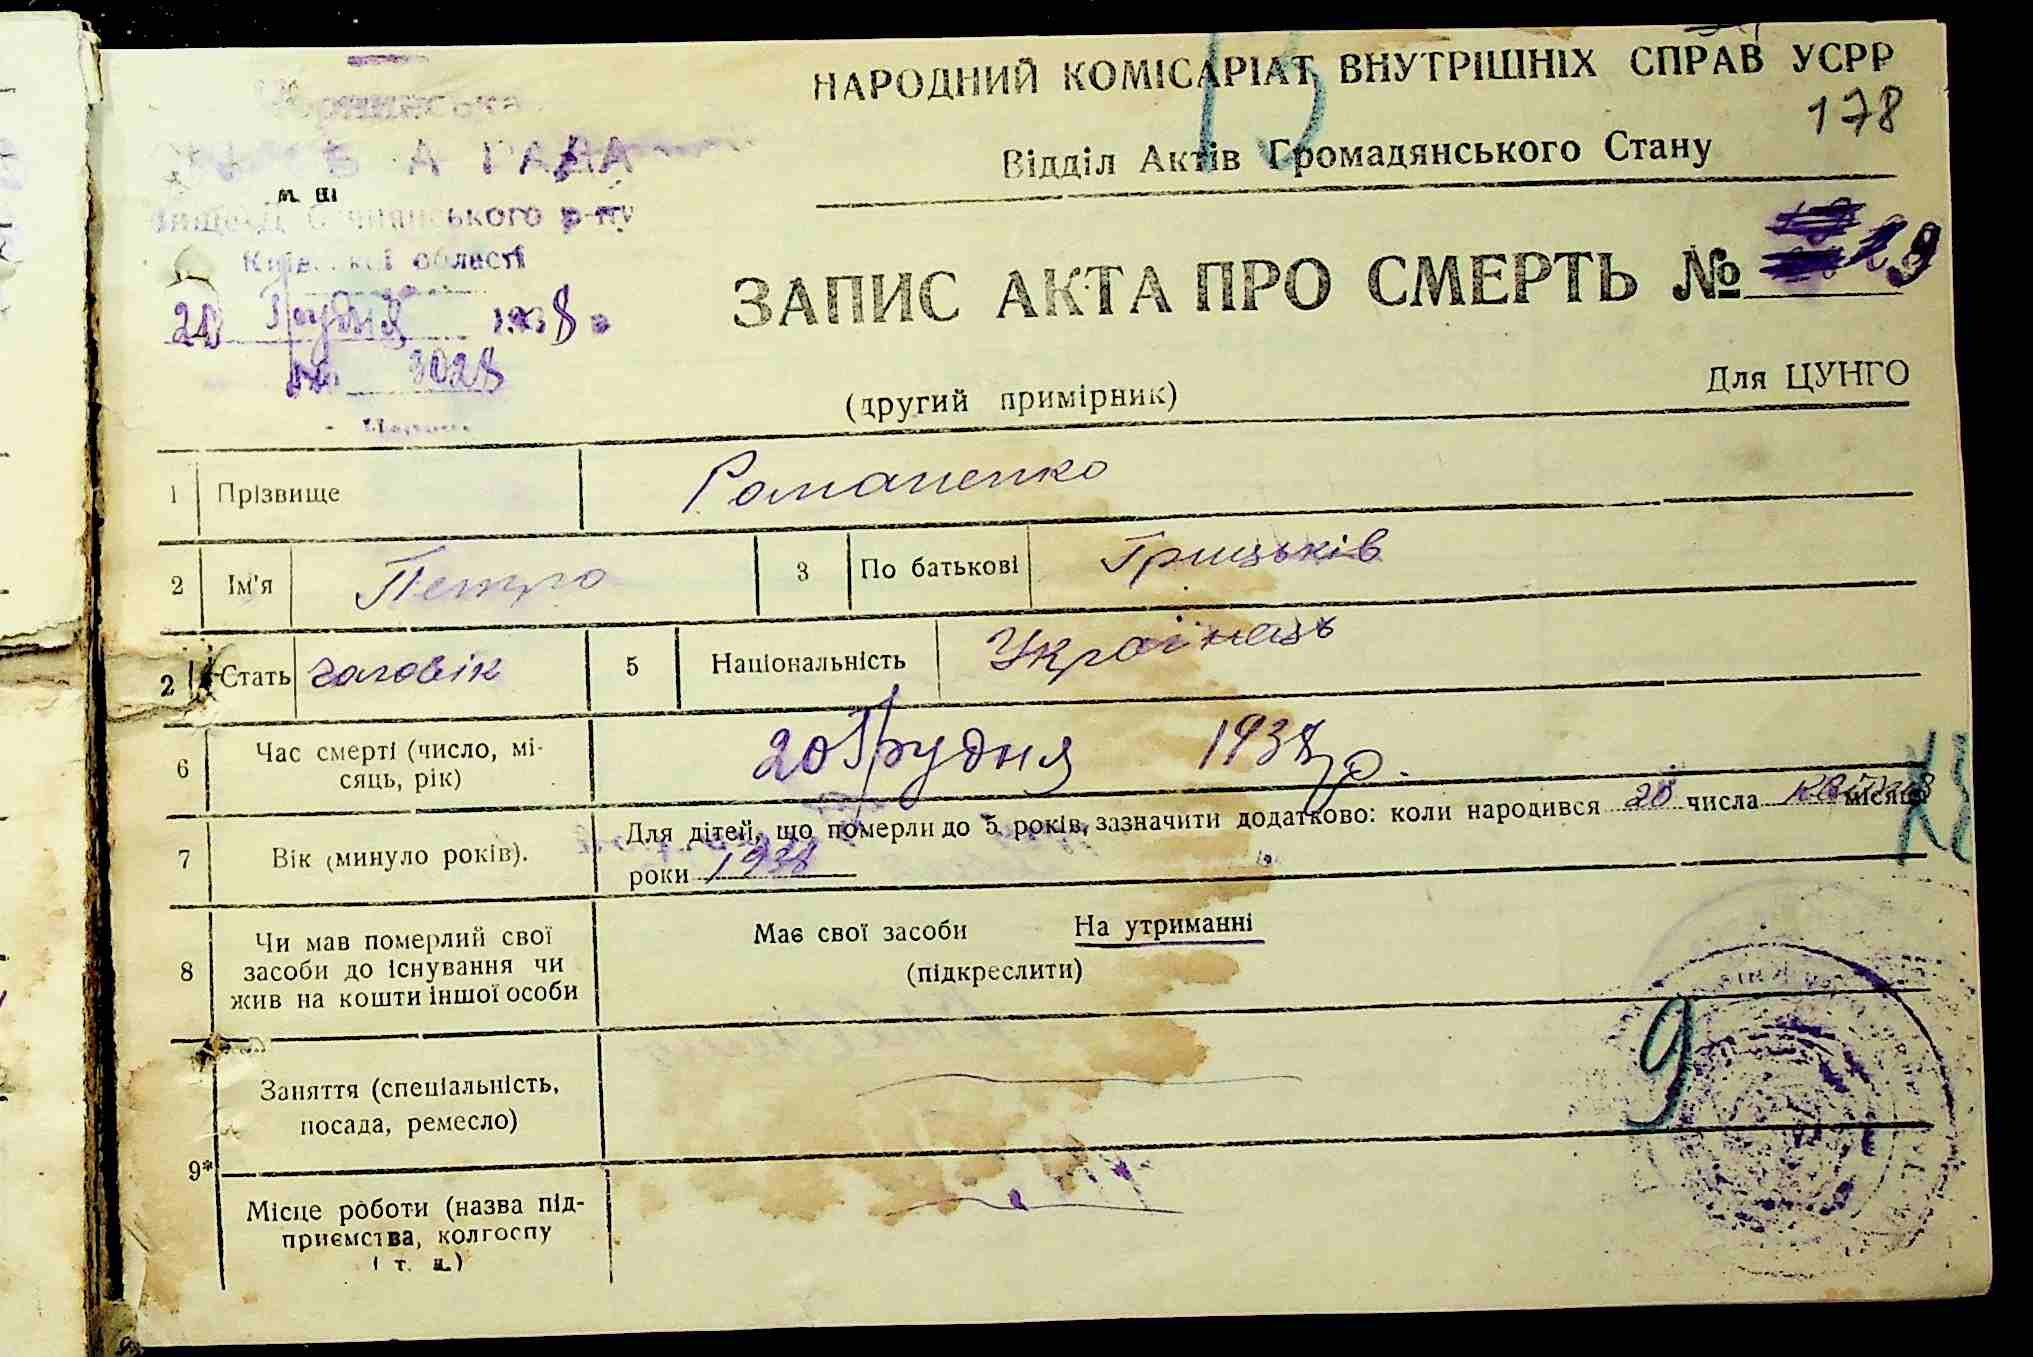 НАРОДНИЙ КОМІСАРІАТ ВНУТРІШНІХ СПРАВ УСРР
178
Відділ Актів Громадянського Стану
РАДА
р-ну
області
20 Грудня 1938 р.
№ 3028
ЗАПИС АКТА ПРО СМЕРТЬ № 29
(другий примірник)
Для ЦУНГО
1 Прізвище Романенко
2 Ім'я Петро 3 По батькові Грицьків
2 Стать чоловік 5 Національність Українець
6 Час смерті (число, мі-
сяць, рік) 20 Грудня 1938 р.
7 Вік (минуло років). Для дітей, що померли до 5 років, зазначити додатково: коли народився 20 числа квітня місяця
роки 1938
8 Чи мав померлий свої
засоби до існування чи
жив на кошти іншої особи
Має свої засоби На утриманні
(підкреслити)
9*
Заняття (спеціальність,
посада, ремесло)
9
Місце роботи (назва під-
приємства, колгоспу
і т. и.)